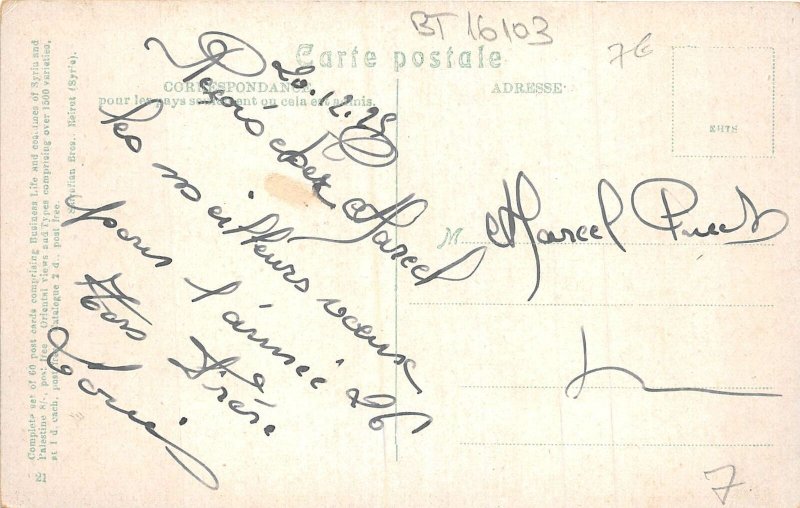 BT 16103
7€
Carte postale
CORRESPONDANCE
pour les pays seulement ou cela est admis.
ADRESSE
20.12.25
cher Marcel
les meilleurs vœux
pour l'année 26
Ton Frère
Louis
M Marcel
7
Complete set of 60 post cards comprising Business Life and costumes of Syria and
Palestine 8/-, post free. Oriental views and Types comprising over 1500 varieties,
at 1 d. each, post free. Catalogue 2 d., post free.
Sarrafian Bros., Beirut (Syrie).